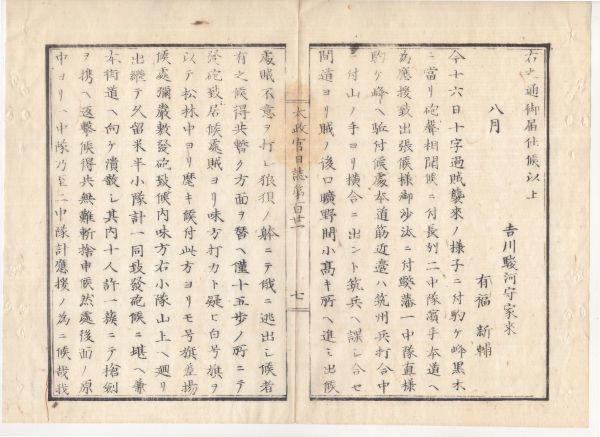 右之通御届仕候以上
八月
吉川駿河守家来
有福新輔
今十六日十字過賊襲来ノ様子ニ付駒ケ峰黒木
ニ當リ砲聲相聞候ニ付長州二中隊濱手本道ヘ
為應援致出張候様御沙汰ニ付弊藩一中隊直様
駒ケ峰ヘ駈付候處本道筋近邊ハ筑州兵打合中
ニ付山ノ手ヨリ横合ニ出ント筑兵ヘ謀シ合セ
間道ヨリ賊ノ後口曠野間小高キ所ヘ進ミ出候
太政官日誌第百廿一
七
處賊不意ヲ打レ狼狽ノ躰ニテ俄ニ逃出シ候者
有之候得共暫ク方面ヲ替ヘ僅十五歩ノ所ニテ
發砲致居候處賊ヨリ味方打カト疑ヒ白号旗ヲ
以テ松林中ヨリ麾キ候付此方ヨリモ号旗差揚
候處彌嚴敷發砲致候内味方右小隊山上ヘ廻リ
出纔テ久留米半小隊計一同致發砲候ニ堪ヘ兼
本街道ヘ向ケ潰散シ其内十人許一蔟ニテ槍劍
ヲ携ヘ返撃候得共無難斬捨申候然處後面ノ原
中ヨリ一中隊乃至二中隊計應援ノ為ニ候哉我